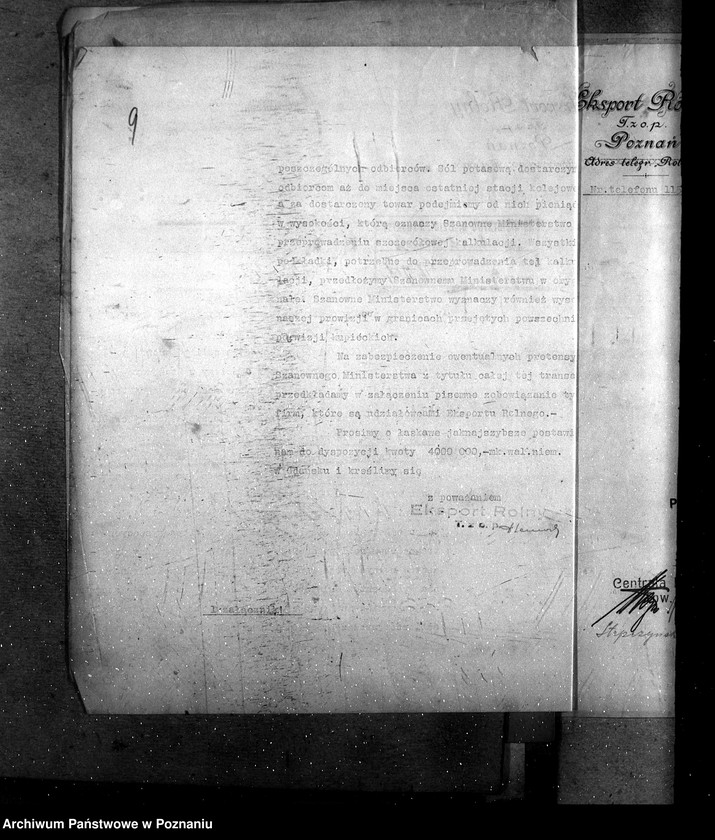 9
poszczególnych odbiorców. Sól potasową dostarczym
odbiorcom aż do miejsca ostatniej stacji kolejowe
a za dostarczony towar podejmiemy od nich pienią
w wysokości, którą oznaczy Szanowne Ministerstwo
przeprowadzeniu szczegółowej kalkulacji. Wszystki
podkładki, potrzebne do przeprowadzenia tej kalku
lacji, przedłożymy Szanownemu Ministerstwu w ory
nale. Szanowne Ministerstwo wyznaczy również wyso
naszej prowizji w granicach przejętych powszechni
prowizji kupieckich.
Na zabezpieczenie ewentualnych pretensy
Szanownego Ministerstwa z tytułu całej tej transa
przedkładamy w załączeniu pisemne zobowiązanie ty
firm, które są udziałowcami Eksportu Rolnego.-
Prosimy o łaskawe jaknajszybsze postawi
nam do dyspozycji kwoty 4000 000,-mk.wal.niem.
w Gdańsku i kreślimy się
z poważaniem
Eksport Rolny
T. z o. p.
1 załącznik!
Eksport Ro
T. z o. p.
Poznań
Adres telegr. Rol
Nr. telefonu 11
P
Centrala
Archiwum Państwowe w Poznaniu